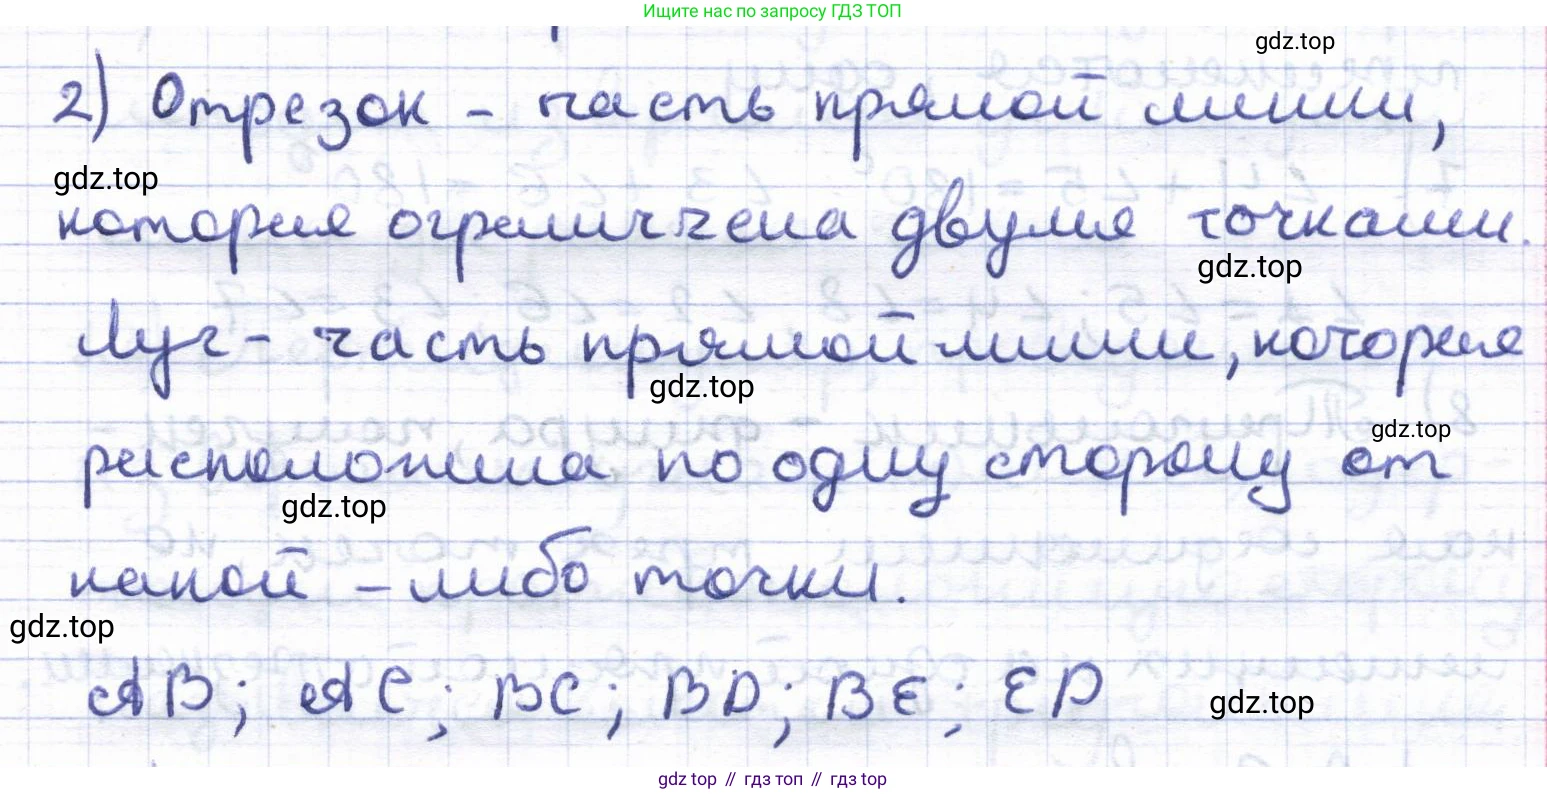 Ищите нас по запросу ГДЗ ТОП
gdz.top
2) Отрезок - часть прямой линии,
gdz.top
которая ограничена двумя точками.
gdz.top
Луч - часть прямой линии, которая
gdz.top
gdz.top
расположена по одну сторону от
gdz.top
какой-либо точки.
gdz.top
AB; AC; BC; BD; BE; ED
gdz.top
gdz top // гдз топ // гдз top